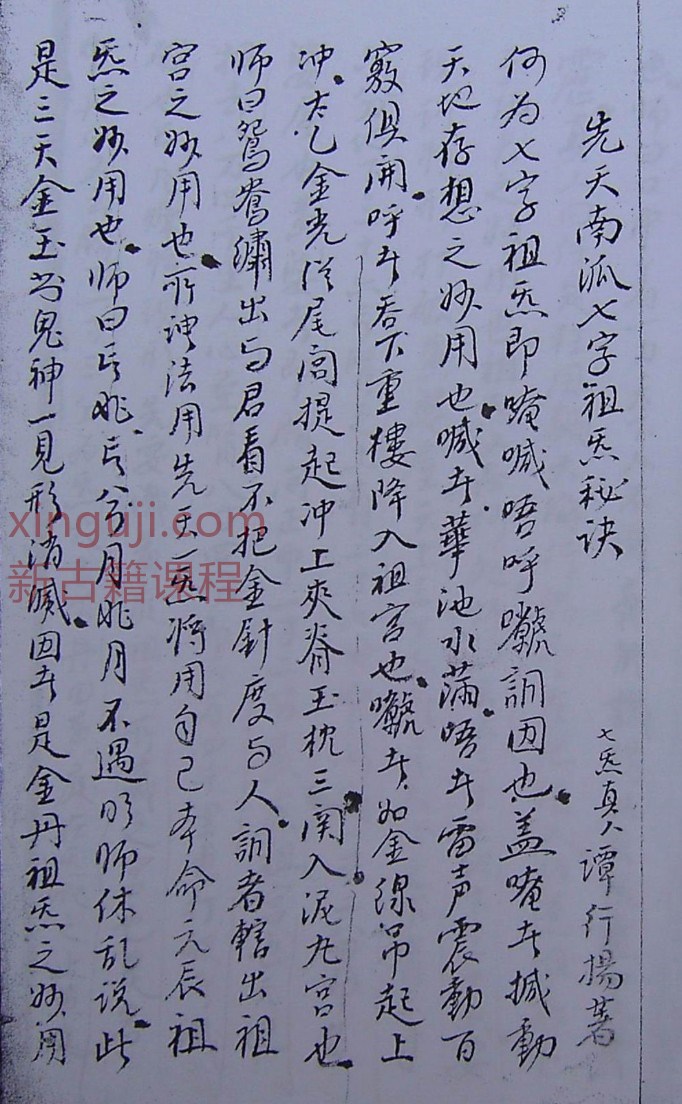 先天南派七字祖炁秘诀
七炁真人 谭行揚著
何为七字祖炁即唵喊唔呼嚱訶囙也盖唵者撼動
天地存想之妙用也喊者華池水满唔者雷声震動百
竅俱開呼者吞下重樓降入祖宫也 者如金線吊起上
冲太乙金光从尾閭提起冲上夾脊玉枕三関入泥丸宫也
师曰鴛鴦繡出与君看不把金針度与人 者轄出祖
宫之妙用也所謂法用先天一炁將用自己本命元辰祖
炁之妙用也师曰 月 月不遇明师休乱説此
是三天金玉 鬼神一見形消滅囙者是金丹祖炁之妙用
xinguji.com
新古籍课程